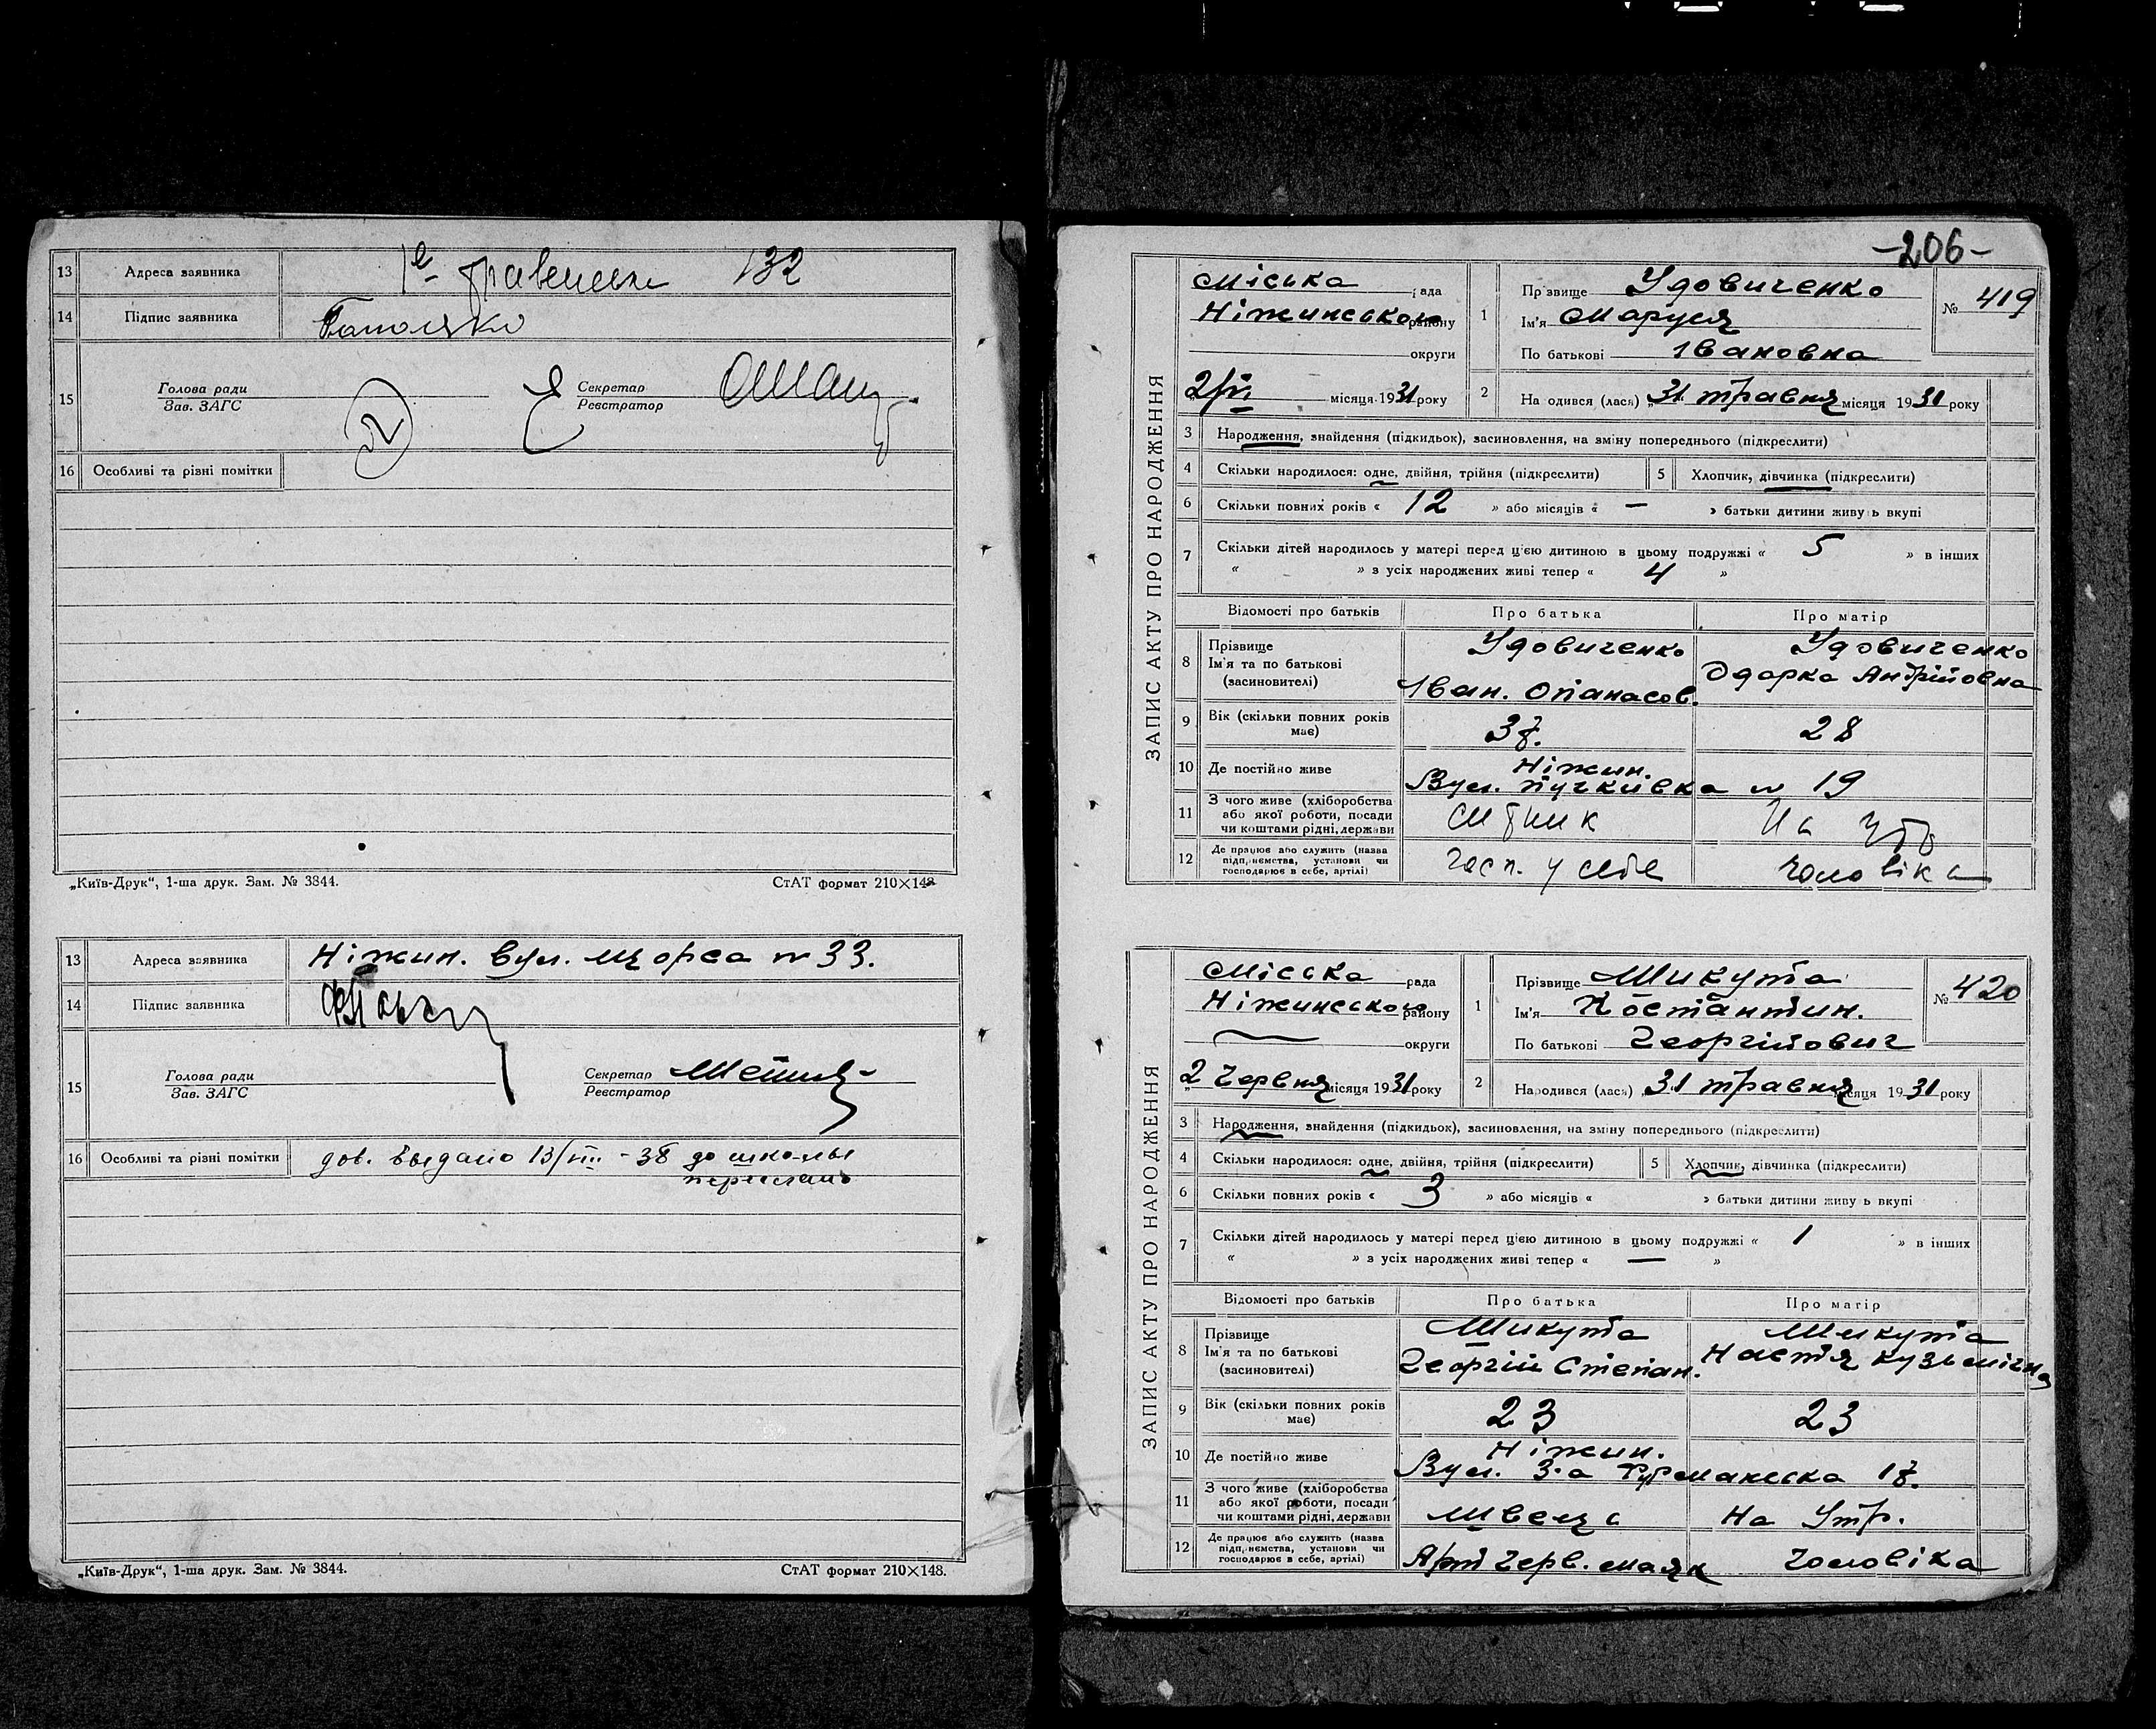 13 Адреса заявника 132
14 Підпис заявника
15 Голова ради Зав. ЗАГС Секретар Реєстратор
16 Особливі та різні помітки
„Київ-Друк“, 1-ша друк. Зам. № 3844. СтАТ формат 210×148
13 Адреса заявника Ніжин. Вул. Щорса № 33.
14 Підпис заявника
15 Голова ради Зав. ЗАГС Секретар Реєстратор
16 Особливі та різні помітки дов. выдано 13/VIII - 38 до школы
„Київ-Друк“, 1-ша друк. Зам. № 3844. СтАТ формат 210×148.
-206-
ЗАПИС АКТУ ПРО НАРОДЖЕННЯ
Міська рада
Ніжинського району
округи
2/VI місяця 1931 року
1 Прізвище Удовиченко
Ім'я Маруся
По батькові Івановна
№ 419
2 Народився (лася) „31 травня місяця 1931 року
3 Народження, знайдення (підкидьок), засиновлення, на зміну попереднього (підкреслити)
4 Скільки народилося: одне, двійня, трійня (підкреслити) 5 Хлопчик, дівчинка (підкреслити)
6 Скільки повних років « 12 » або місяців « — » батьки дитини живуть вкупі
7 Скільки дітей народилось у матері перед цією дитиною в цьому подружжі « 5 » в інших
« » з усіх народжених живі тепер « 4 »
Відомості про батьків Про батька Про матір
8 Прізвище Ім'я та по батькові (засиновителі)
Удовиченко Удовиченко
Іван. Опанасов. Одарка Андрійовна
9 Вік (скільки повних років має) 37. 28
10 Де постійно живе Ніжин.
Вул. Пучківка № 19
11 З чого живе (хліборобства або якої роботи, посади чи коштами рідні, держави На
12 Де працює або служить (назва підприємства, установи чи господарює в себе, артілі) госп. у себе чоловіка
ЗАПИС АКТУ ПРО НАРОДЖЕННЯ
Міська рада
Ніжинського району
округи
„2 Червня місяця 1931 року
1 Прізвище Шикута
Ім'я Костантин.
По батькові Георгійович
№ 420
2 Народився (лася) „31 травня місяця 1931 року
3 Народження, знайдення (підкидьок), засиновлення, на зміну попереднього (підкреслити)
4 Скільки народилося: одне, двійня, трійня (підкреслити) 5 Хлопчик, дівчинка (підкреслити)
6 Скільки повних років « 3 » або місяців « » батьки дитини живуть вкупі
7 Скільки дітей народилось у матері перед цією дитиною в цьому подружжі « 1 » в інших
« » з усіх народжених живі тепер « — »
Відомості про батьків Про батька Про матір
8 Прізвище Ім'я та по батькові (засиновителі)
Шикута Шикута
Георгій Степан. Настя Кузьмічна
9 Вік (скільки повних років має) 23 23
10 Де постійно живе Ніжин.
Вул. 3-а 17.
11 З чого живе (хліборобства або якої роботи, посади чи коштами рідні, держави Швець На Утр.
12 Де працює або служить (назва підприємства, установи чи господарює в себе, артілі) Арт Черв. маяк чоловіка